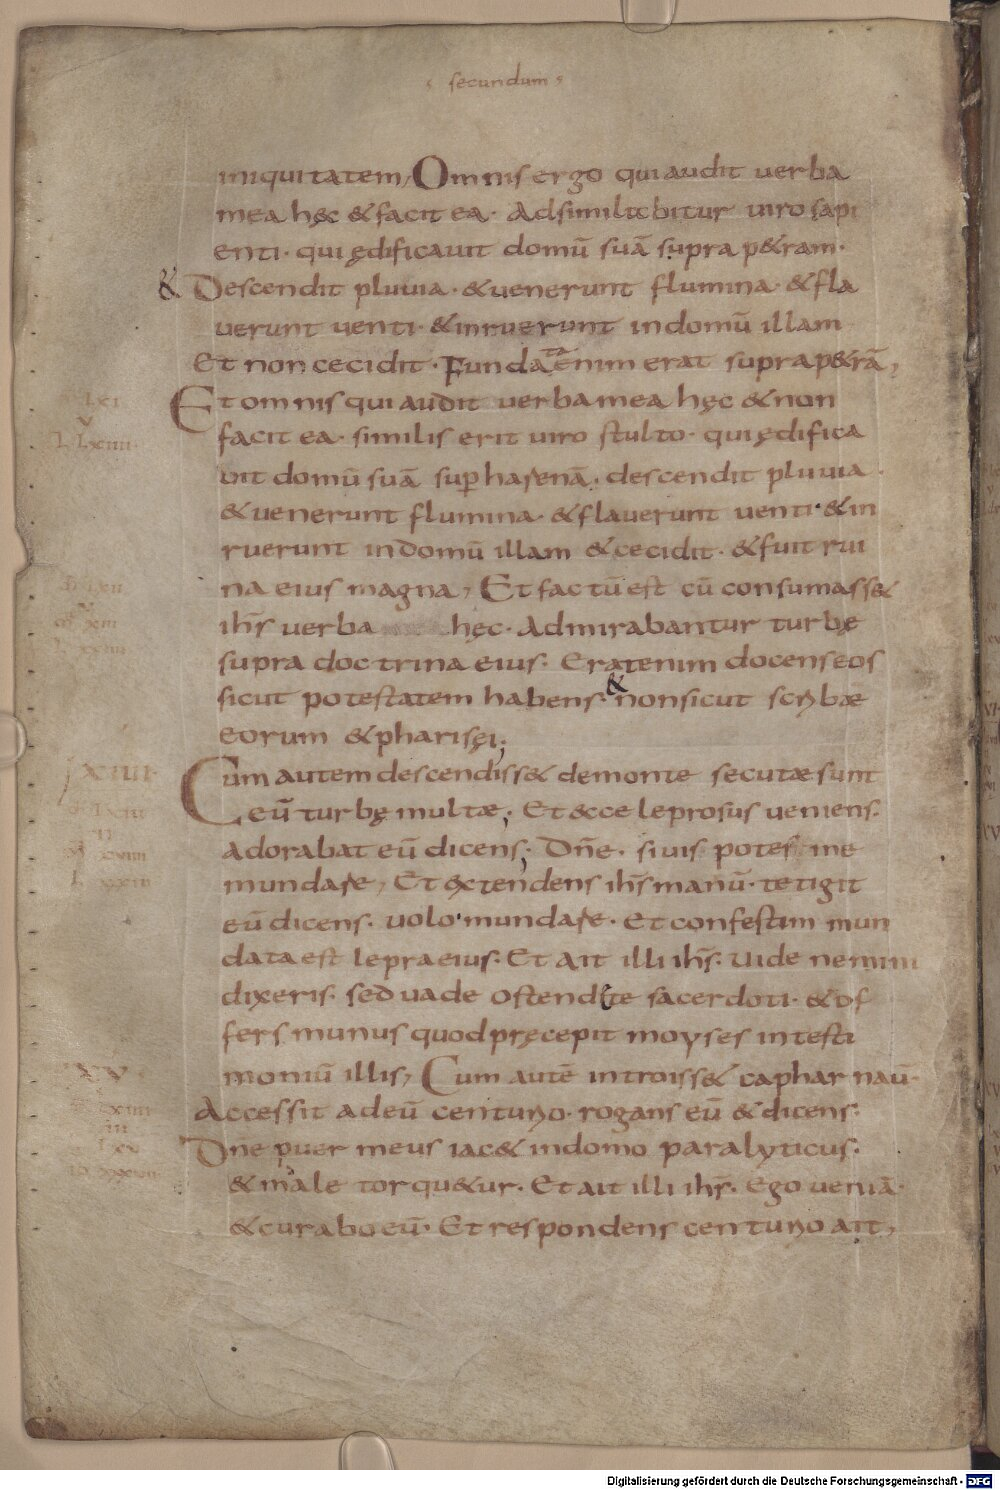 secundum
iniquitatem, Omnis ergo qui audit verba
mea hęc & facit ea· Adsimilabitur viro sapi
enti· qui ędificavit domū suā supra p&ram·
& Descendit pluvia· & venerunt flumina· & fla
verunt venti· & inruerunt in domū illam
Et non cecidit· Fundata enim erat supra p&rā,
Et omnis qui audit verba mea hęc & non
facit ea· similis erit viro stulto· qui ędifica
vit domū suā sup harenā· descendit pluvia·
& venerunt flumina· & flaverunt venti· & in
ruerunt in domū illam & cecidit· & fuit rui
na eius magna, Et factū est cū consumass&
ihs verba hęc· Admirabantur turbę
supra doctrina eius· Erat enim docens eos
sicut potestatem habens· & non sicut scrybæ
eorum & pharisęi;
XIIII
Cum autem descendiss& de monte secutæ sunt
eū turbę multæ; Et ecce leprosus veniens·
adorabat eū dicens; Dñe· si vis potes me
mundare, Et extendens ihs manū· tetigit
eū dicens· volo· mundare· Et confestim mun
data est lepra eius· Et ait illi ihs· Vide nemini
dixeris· sed vade ostende te sacerdoti· & of
fers munus quod pręcepit moyses in testi
moniū illis, Cum autē introiss& capharnaū·
XV
Accessit ad eū centurio· rogans eū & dicens·
Dñe puer meus iac& in domo paralyticus·
& male torqu&ur· Et ait illi ihs· Ego veniā·
& curabo eū· Et respondens centurio ait,
Digitalisierung gefördert durch die Deutsche Forschungsgemeinschaft - DFG